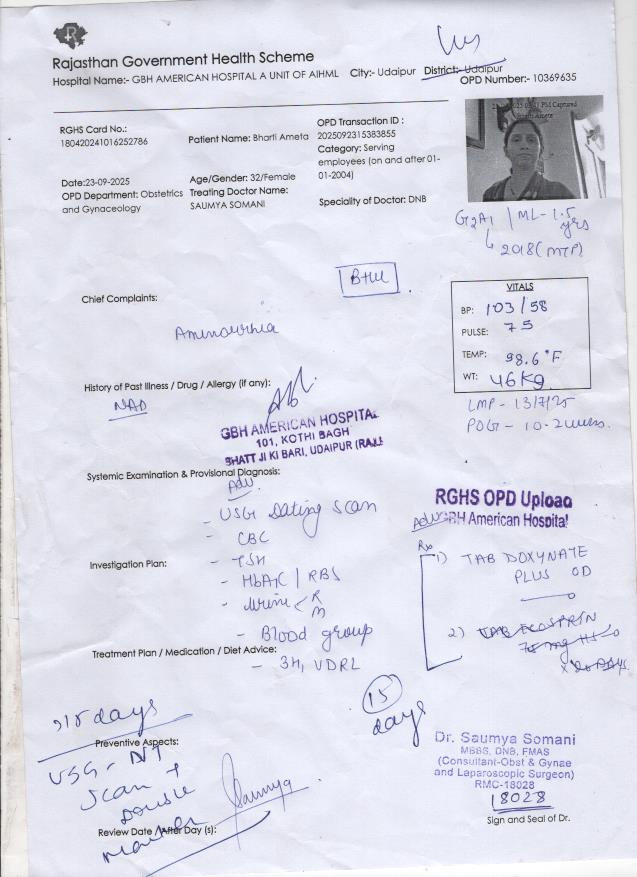 Rajasthan Government Health Scheme
Hospital Name:- GBH AMERICAN HOSPITAL A UNIT OF AIHML City:- Udaipur District:- Udaipur
OPD Number:- 10369635
RGHS Card No.:
180420241016252786
Patient Name: Bharti Ameta
OPD Transaction ID :
2025092315383855
Category: Serving
employees (on and after 01-
01-2004)
Date:23-09-2025
OPD Department: Obstetrics
and Gynaceology
Age/Gender: 32/Female
Treating Doctor Name:
SAUMYA SOMANI
Speciality of Doctor: DNB
PM Captured
G2A1 | ML- 1.5 yrs
↳ 2018 (MTP)
Chief Complaints:
Aminourrhia
VITALS
BP: 103/58
PULSE: 75
TEMP: 98.6°F
WT: 46 Kg
LMP - 13/7/25
POG - 10.2 weeks.
History of Past Illness / Drug / Allergy (if any):
NAD
GBH AMERICAN HOSPITAL
101, KOTHI BAGH
BHATT JI KI BARI, UDAIPUR (RAJ.)
Systemic Examination & Provisional Diagnosis:
Adv
- USG Dating Scan
- CBC
Investigation Plan:
- TSH
- HbA1C | RBS
- Urine < R
M
- Blood group
Treatment Plan / Medication / Diet Advice:
- 3H, VDRL
RGHS OPD Upload
GBH American Hospital
Adv
Rx
1) TAB DOXYNATE
PLUS OD
2) TAB ECOSPRIN
75 mg HS
x 20 DAYS
15
days
15 days
Preventive Aspects:
USG - NT
Scan +
Double
marker
Review Date /After Day (s):
Saumya
Dr. Saumya Somani
MBBS, DNB, FMAS
(Consultant-Obst & Gynae
and Laparoscopic Surgeon)
RMC-18028
18028
Sign and Seal of Dr.